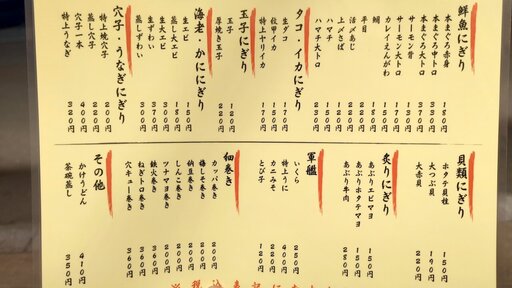 鮮魚にぎり
本まぐろ赤身 180円
本まぐろ中トロ 330円
本まぐろ大トロ 360円
サーモン背 130円
サーモン大トロ 170円
カレイえんがわ 150円
鯛 180円
平目 180円
活〆あじ 150円
上〆さば 150円
ハマチ 150円
ハマチ大トロ 230円
タコ・イカにぎり
生ダコ 170円
紋甲イカ 150円
特上ヤリイカ 170円
玉子にぎり
玉子 120円
厚焼き玉子 220円
海老・かににぎり
生エビ 150円
蒸し大エビ 180円
生大エビ 300円
生ずわい 370円
蒸しずわい 300円
穴子・うなぎにぎり
特上焼穴子 200円
蒸し穴子 220円
一本穴子 400円
特上うなぎ 320円
貝類にぎり
ホタテ貝柱 150円
大つぶ貝 190円
大赤貝 220円
炙りにぎり
あぶりエビマヨ 150円
あぶりホタテマヨ 150円
あぶり牛肉 280円
軍艦
いくら 250円
特上うに 400円
カニみそ 220円
とび子 120円
細巻き
カッパ巻き 200円
梅しそ巻き 200円
納豆巻き 200円
しんこ巻き 200円
ツナマヨ巻き 200円
鉄火巻き 360円
ねぎトロ巻き 360円
穴キュー巻き 360円
その他
かけうどん 410円
茶碗蒸し 350円
※税込表記に